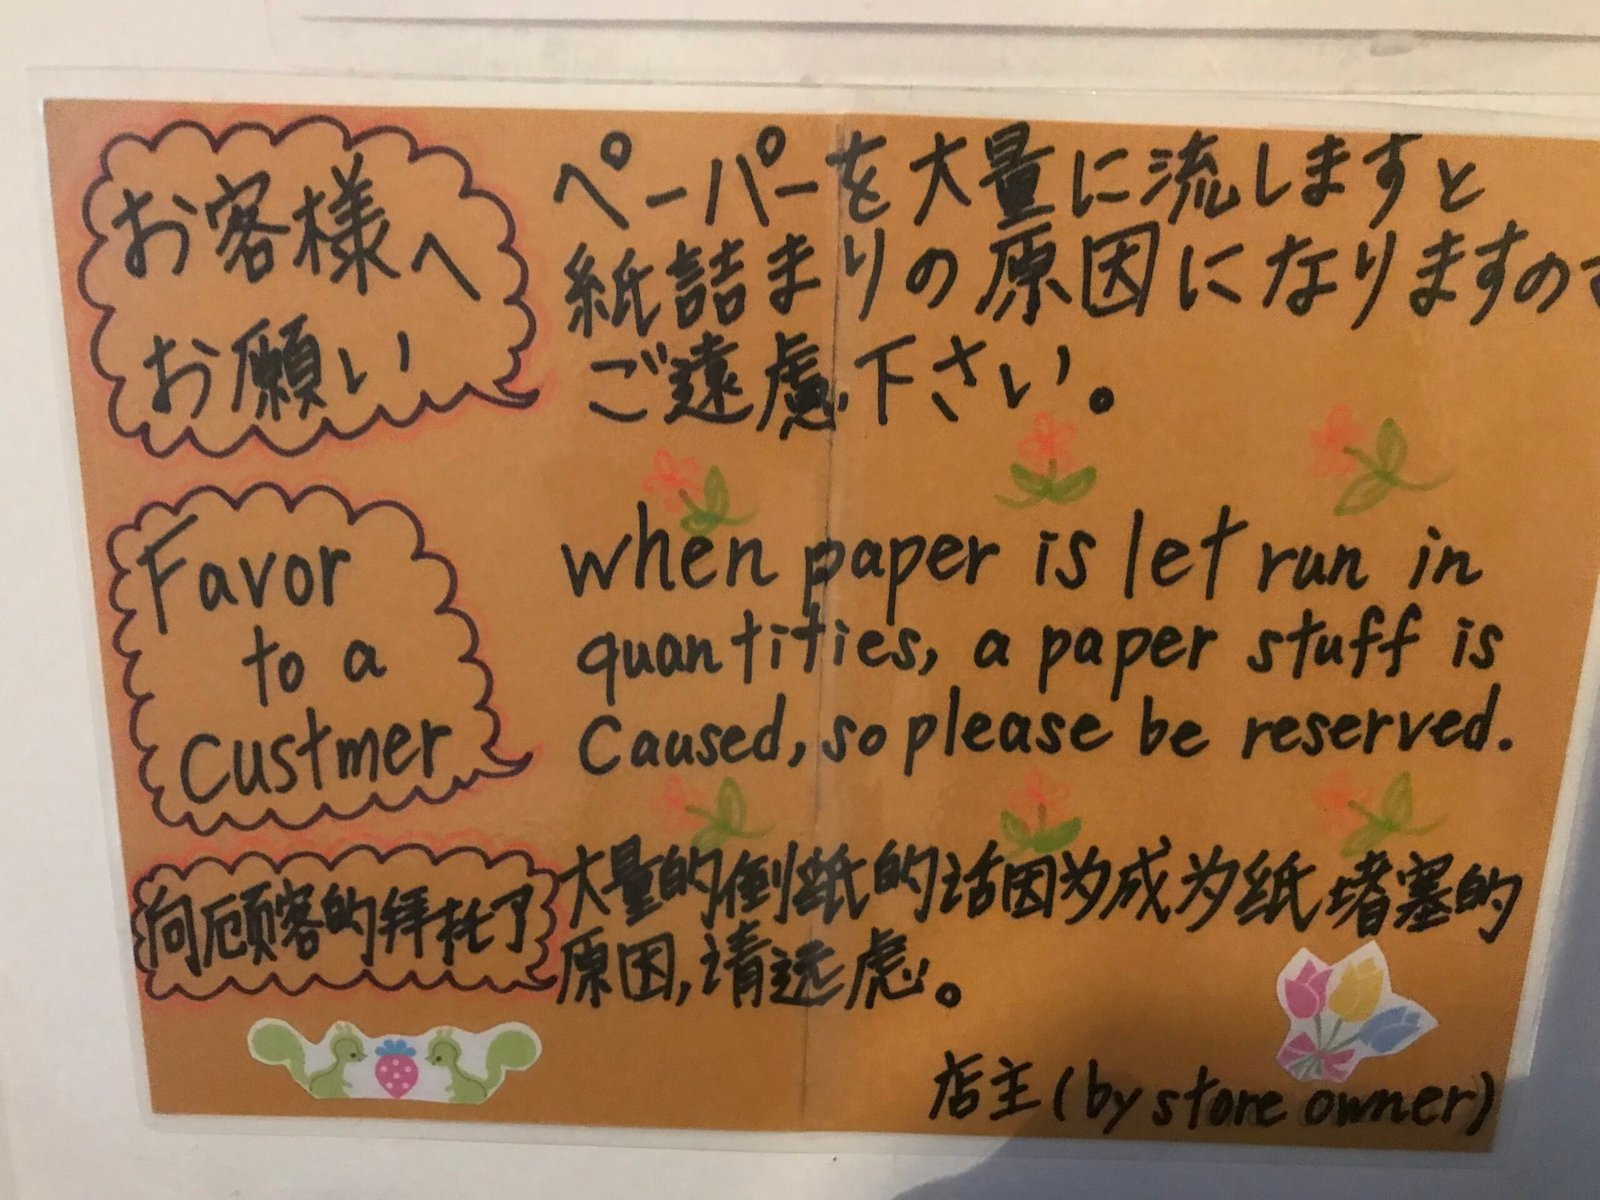 お客様へ
お願い
ペーパーを大量に流しますと
紙詰まりの原因になりますので
ご遠慮下さい。
Favor
to a
Custmer
when paper is let run in
quantities, a paper stuff is
Caused, so please be reserved.
向顾客的拜托了
大量的倒纸的话因为成为纸堵塞的
原因,请远虑。
店主(by store owner)